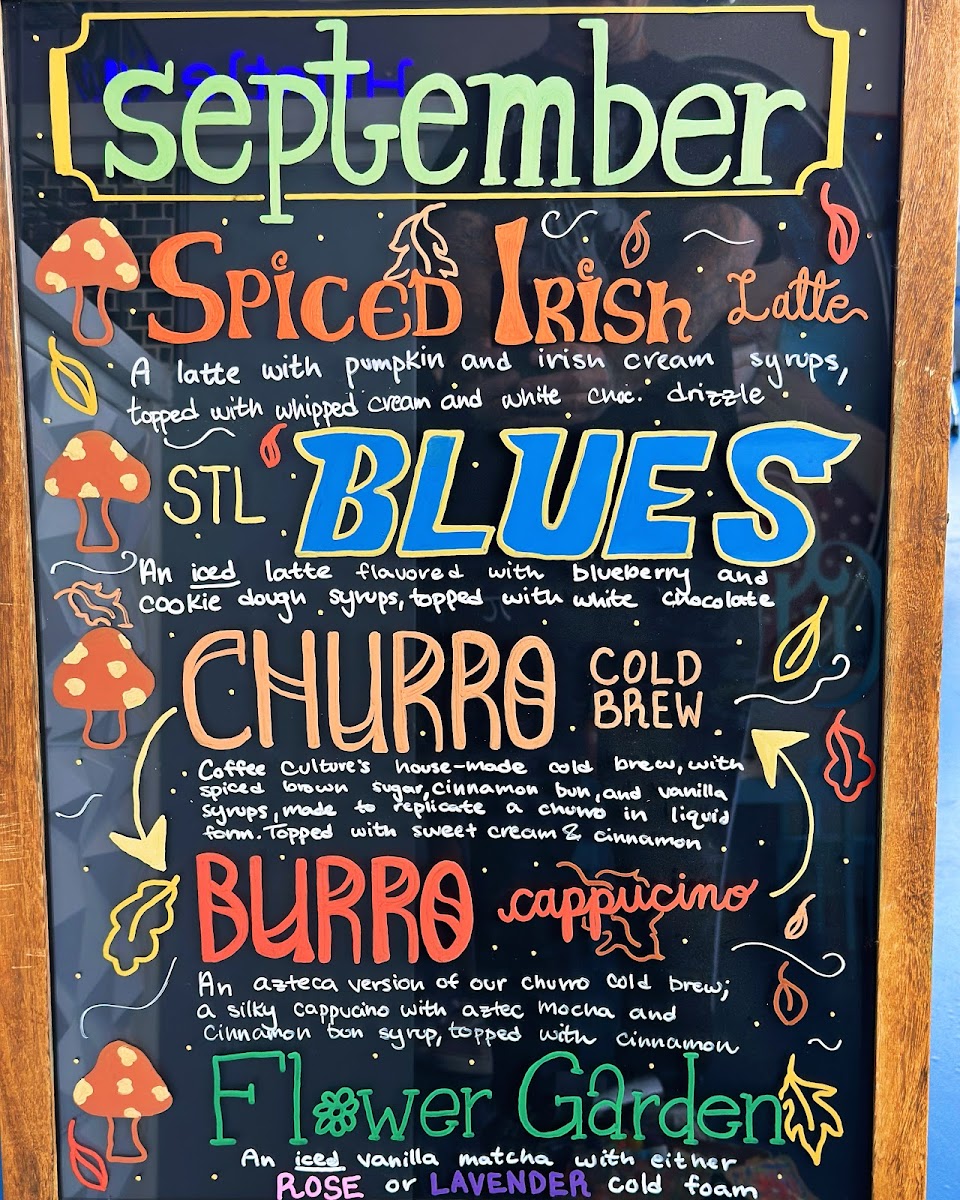 september
Spiced Irish Latte
A latte with pumpkin and irish cream syrups,
topped with whipped cream and white choc. drizzle
STL BLUES
An iced latte flavored with blueberry and
cookie dough syrups, topped with white chocolate
CHURRO COLD BREW
Coffee Culture's house-made cold brew, with
spiced brown sugar, cinnamon bun, and vanilla
syrups, made to replicate a churro in liquid
form. Topped with sweet cream & cinnamon
BURRO cappucino
An azteca version of our churro cold brew;
a silky cappucino with aztec mocha and
cinnamon bun syrup, topped with cinnamon
Flower Garden
An iced vanilla matcha with either
ROSE or LAVENDER cold foam